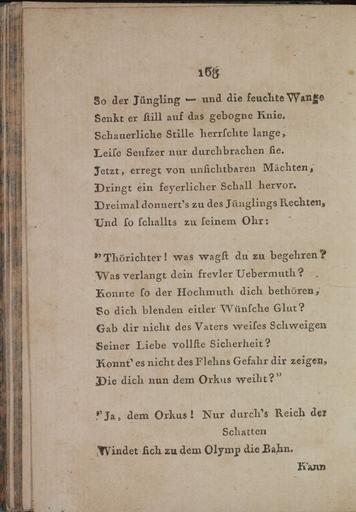 168
So der Jüngling — und die feuchte Wange
Senkt er ſtill auf das gebogne Knie.
Schauerliche Stille herrſchte lange,
Leiſe Seufzer nur durchbrachen ſie.
Jetzt, erregt von unſichtbaren Mächten,
Dringt ein feyerlicher Schall hervor.
Dreimal donnert's zu des Jünglings Rechten,
Und ſo ſchallts zu ſeinem Ohr:
"Thörichter! was wagſt du zu begehren?
Was verlangt dein frevler Uebermuth?
Konnte ſo der Hochmuth dich bethören,
So dich blenden eitler Wünſche Glut?
Gab dir nicht des Vaters weiſes Schweigen
Seiner Liebe vollſte Sicherheit?
Konnt' es nicht des Flehns Gefahr dir zeigen,
Die dich nun dem Orkus weiht?"
"Ja, dem Orkus! Nur durch's Reich der
Schatten
Windet ſich zu dem Olymp die Bahn.
Kann